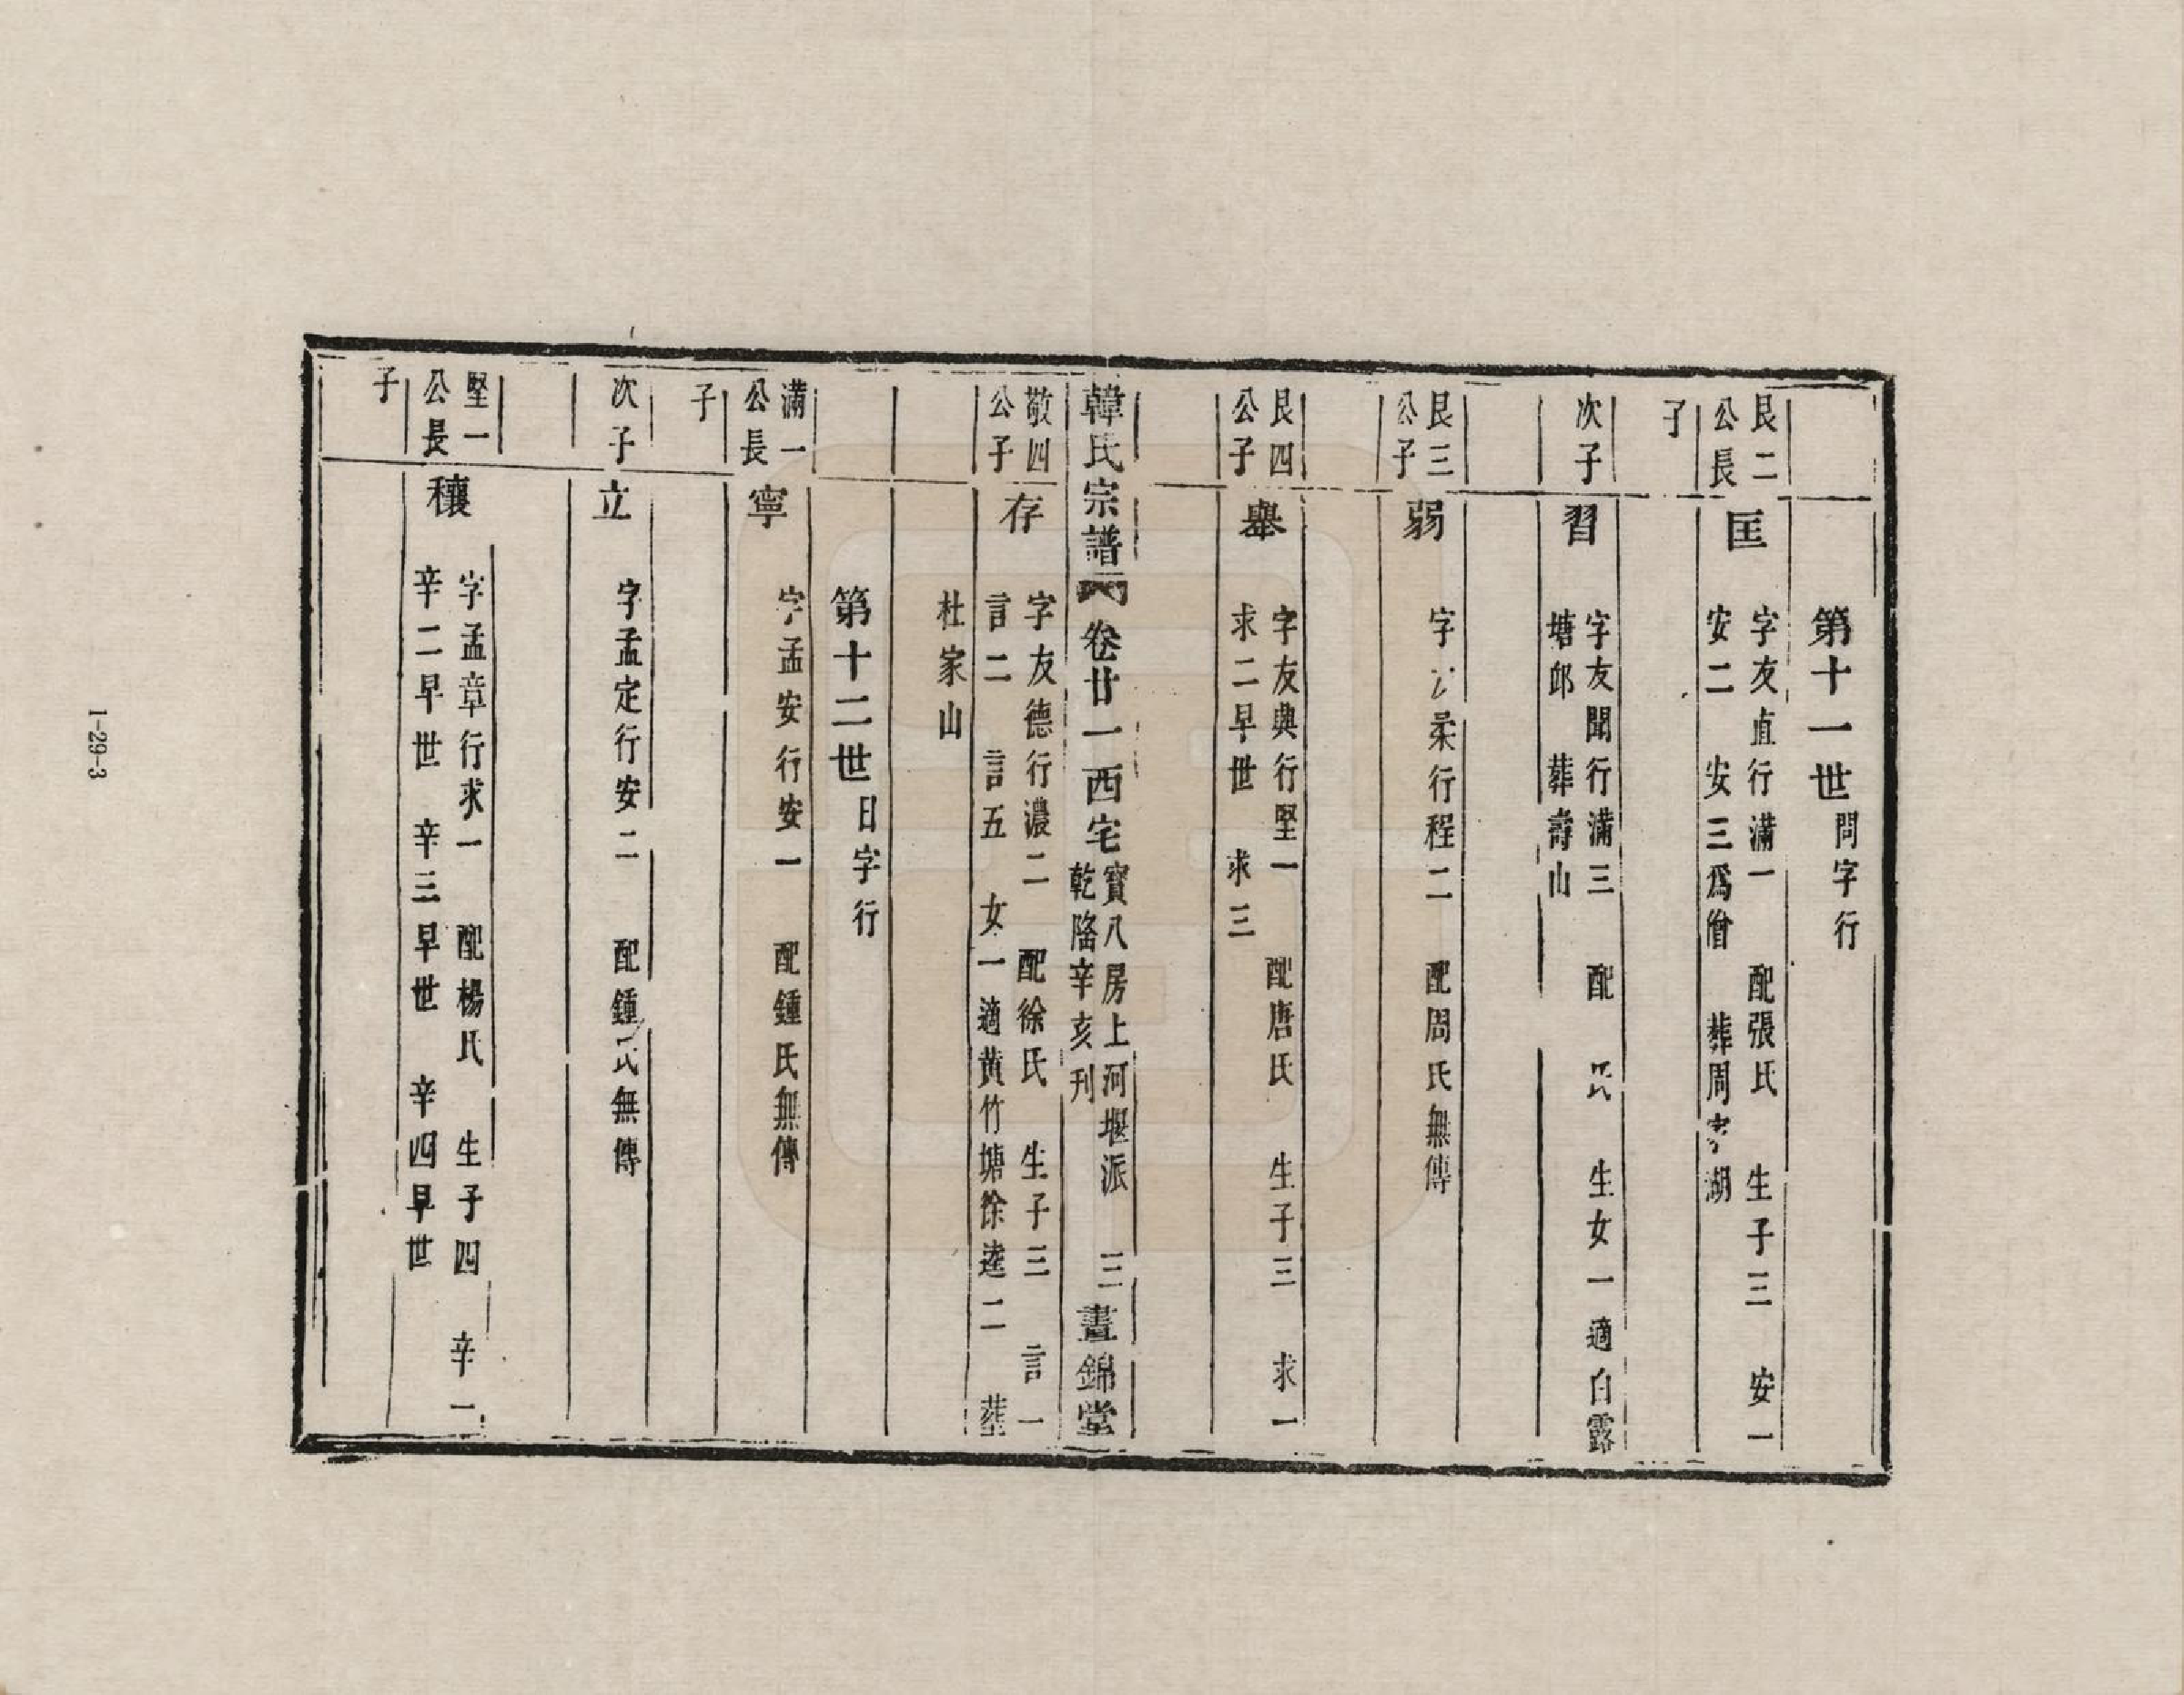 第十一世問字行
艮二公長子
匡
字友直行滿一 配張氏 生子三 安一
安二 安三爲僧 葬周家湖
次子
習
字友聞行滿三 配 氏 生女一適白露
塘邱 葬壽山
艮三公子
弱
字 柔行程二 配周氏無傳
艮四公子
舉
字友典行堅一 配唐氏 生子三 求一
求二早世 求三
韓氏宗譜 卷廿一西宅寶八房上河堰派 三 晝錦堂
乾隆辛亥刊
敬四公子
存
字友德行濃二 配徐氏 生子三 言一
言二 言五 女一適黃竹塘徐逵二 葬
杜家山
第十二世日字行
滿一公長子
寧
字孟安行安一 配鍾氏無傳
次子
立
字孟定行安二 配鍾氏無傳
堅一公長子
穰
字孟章行求一 配楊氏 生子四 辛一
辛二早世 辛三早世 辛四早世
1-29-3